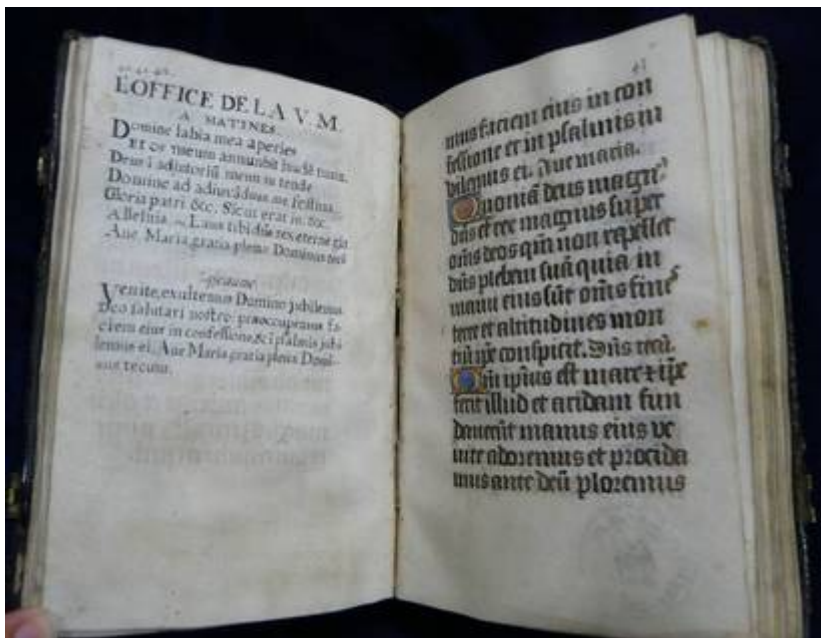 40. 41. 42.
L'OFFICE DE LA V. M.
A MATINES.
Domine labia mea aperies
Et os meum annunbit laudē tuam.
Deus ī adiutoriū meum intende
Domine ad adiuvādum me festina.
Gloria patri &c. Sicut erat in. &c.
Alleluia. Laus tibi dñe rex eterne glo
Ave Maria, gratia plena Dominus tecū
pseaume
Venite, exultemus Domino jubilemus
Deo salutari nostro: præoccupemus fa-
ciem eius in confessione, & ī psalmis jubi
lemus ei. Ave Maria gratia plena Domi-
nus tecum.
41
mus faciem eius in con
fessione et in psalmis iu
bilemus ei. Aue maria.
Quoniā deus magn⁹
dñs et rex magnus super
oms deos qm̄ non repellet
dñs plebem suā quia in
manu eius sūt oms fines
terre et altitudines mon
tiū ip̄e conspicit. Dñs tecū.
Qm̄ ipsius est mare et ip̄e
fecit illud et aridam fun
dauerūt manus eius ve
nite adoremus et procida
mus ante deū ploremus